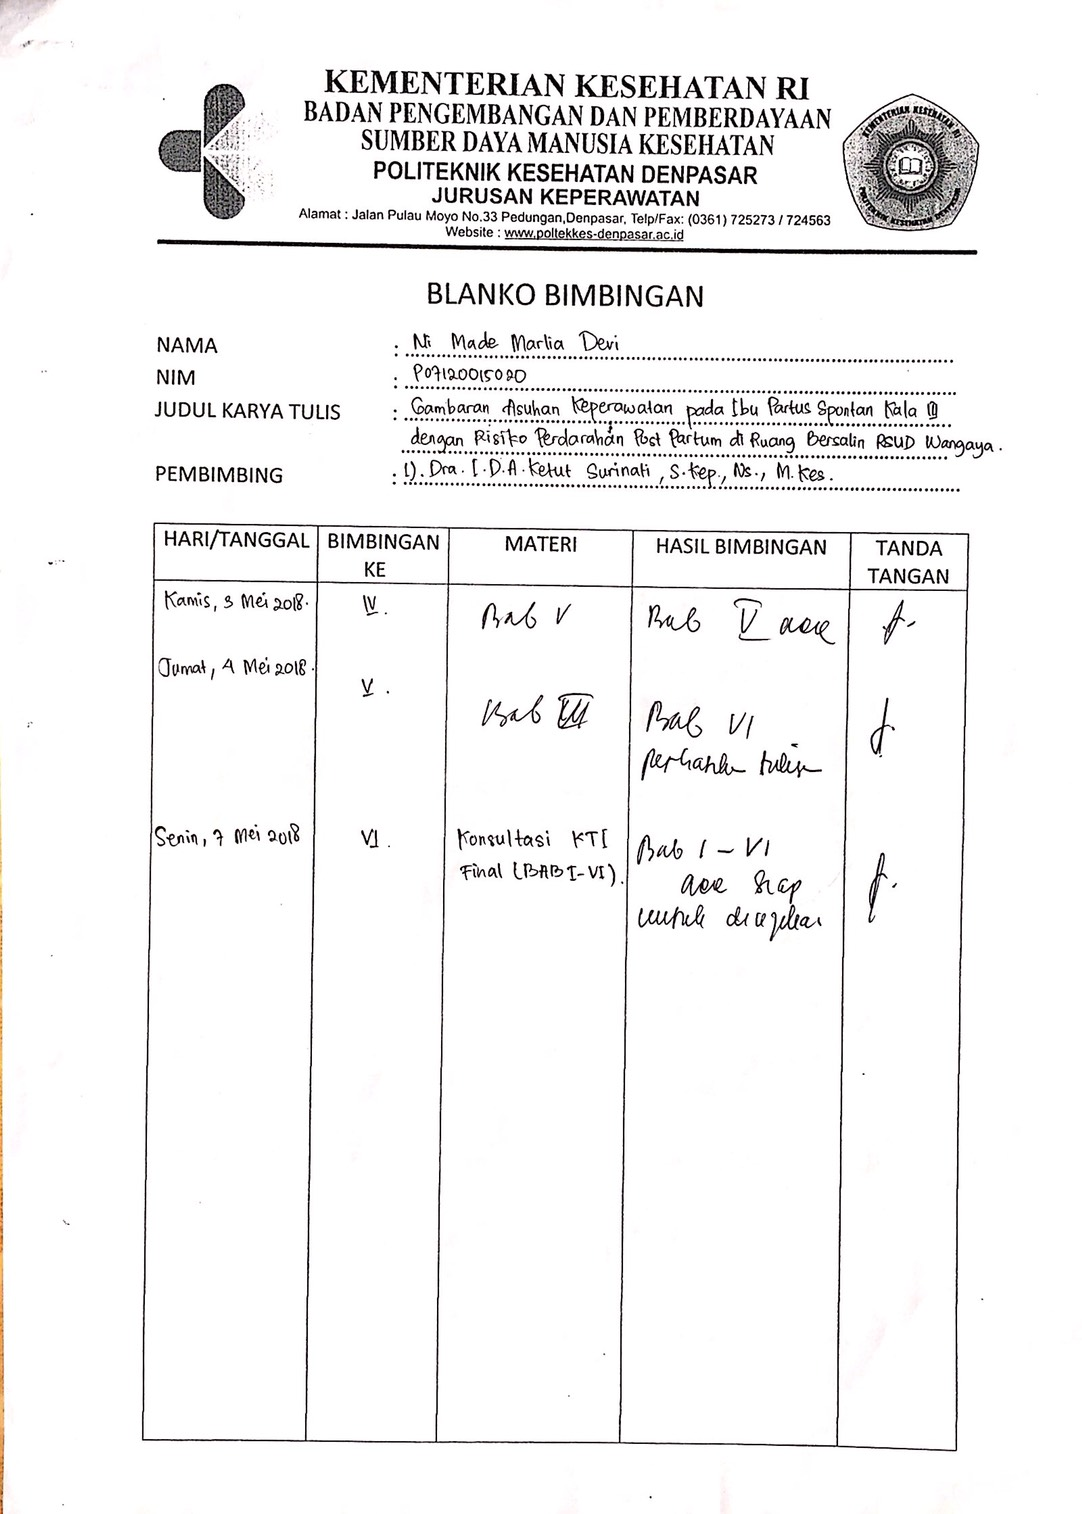 KEMENTERIAN KESEHATAN RI
BADAN PENGEMBANGAN DAN PEMBERDAYAAN
SUMBER DAYA MANUSIA KESEHATAN
POLITEKNIK KESEHATAN DENPASAR
JURUSAN KEPERAWATAN
Alamat : Jalan Pulau Moyo No.33 Pedungan,Denpasar, Telp/Fax: (0361) 725273 / 724563
Website : www.poltekkes-denpasar.ac.id
KEMENTERIAN KESEHATAN RI
POLITEKNIK KESEHATAN DENPASAR
BLANKO BIMBINGAN
NAMA : Ni Made Marlia Devi
NIM : P07120015020
JUDUL KARYA TULIS : Gambaran Asuhan Keperawatan pada Ibu Partus Spontan Kala III
dengan Risiko Perdarahan Post Partum di Ruang Bersalin RSUD Wangaya.
PEMBIMBING : 1). Dra. I.D.A. Ketut Surinati, S.Kep., Ns., M.Kes.
HARI/TANGGAL BIMBINGAN KE MATERI HASIL BIMBINGAN TANDA TANGAN
Kamis, 3 Mei 2018. IV. Bab V Bab V acc
Jumat, 4 Mei 2018. V. Bab Bab VI
Senin, 7 Mei 2018 VI. Konsultasi KTI Bab I - VI
Final (BAB I-VI). acc siap
untuk